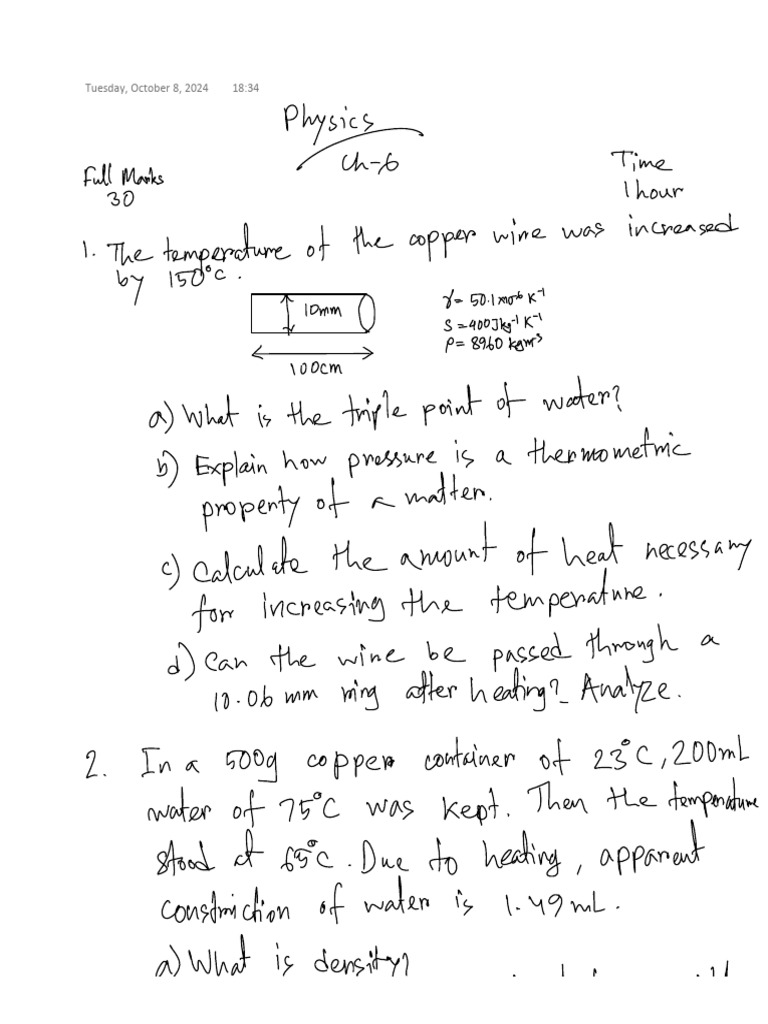 Tuesday, October 8, 2024 18:34
Physics
Ch-6
Full Marks
30
Time
1 hour
1. The temperature of the copper wire was increased
by 150°C.
10mm
100cm
γ = 50.1×10⁻⁶ K⁻¹
S = 400 Jkg⁻¹ K⁻¹
ρ = 8960 kgm⁻³
a) What is the triple point of water?
b) Explain how pressure is a thermometric
property of a matter.
c) Calculate the amount of heat necessary
for increasing the temperature.
d) Can the wire be passed through a
10.06 mm ring after heating? Analyze.
2. In a 500g copper container of 23°C, 200mL
water of 75°C was kept. Then the temperature
stood at 65°C. Due to heating, apparent
constriction of water is 1.49 mL.
a) What is density?